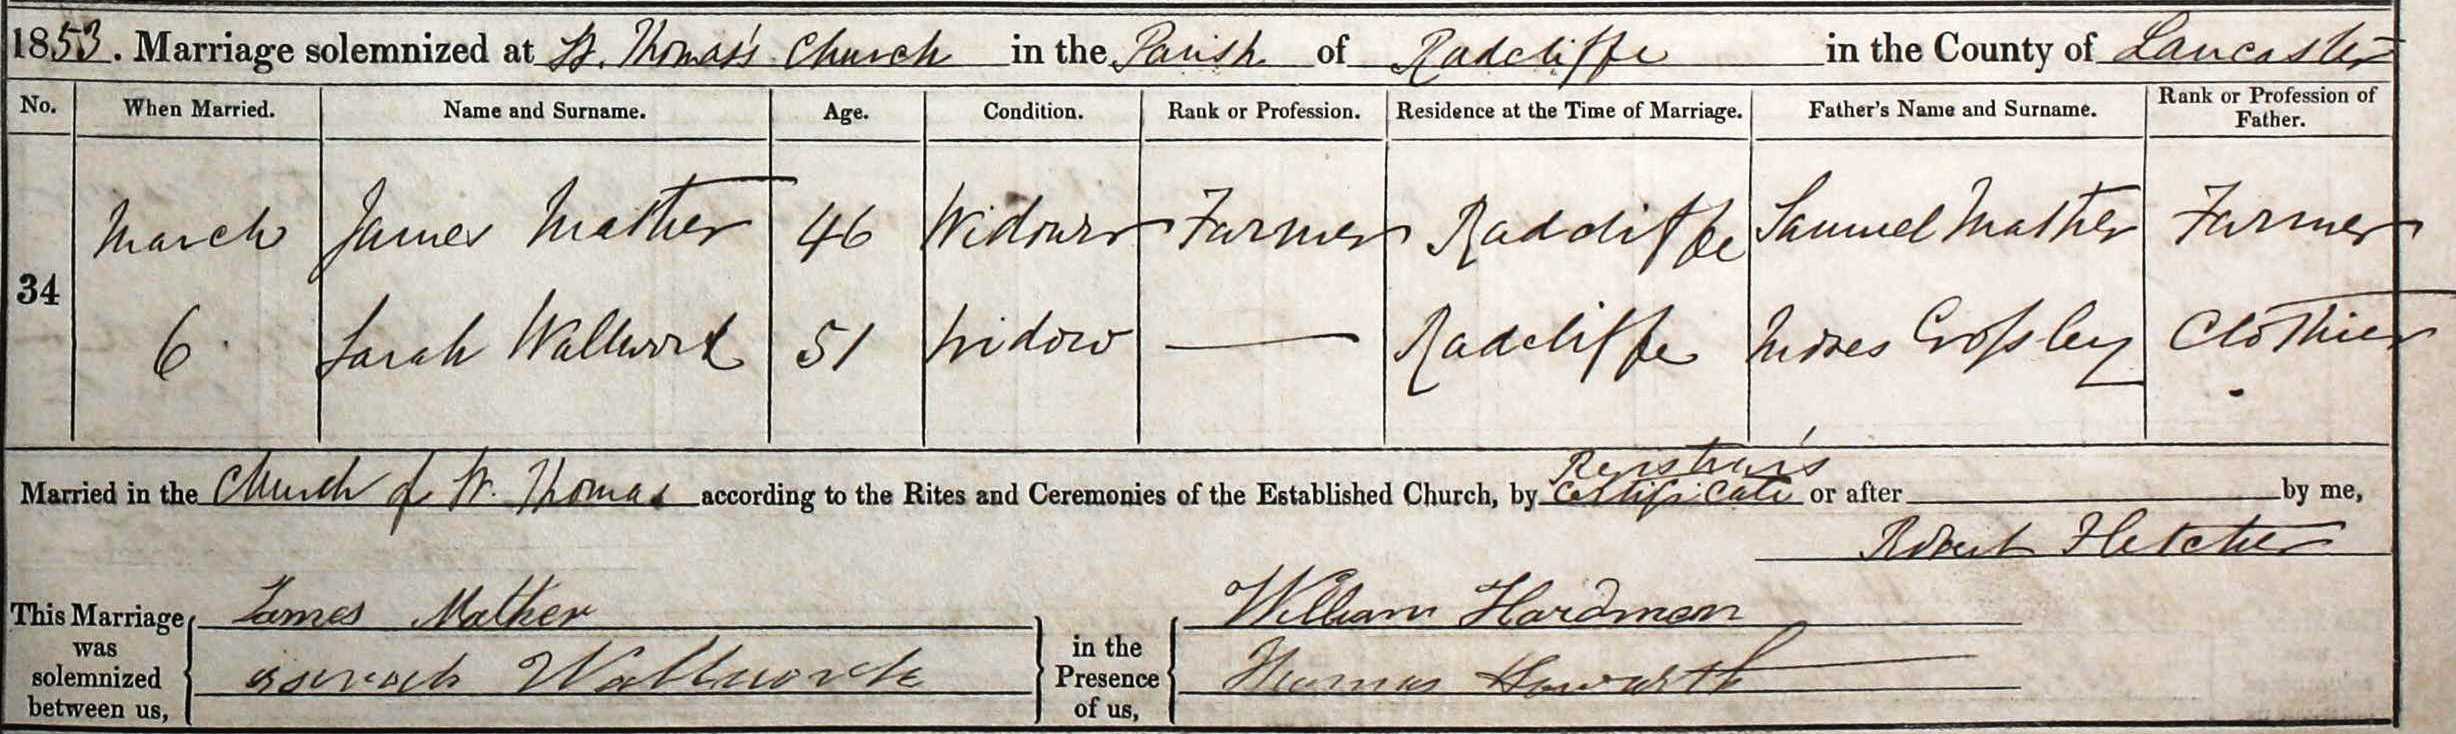 1853. Marriage solemnized at St. Thomas's Church in the Parish of Radcliffe in the County of Lancaster
No. When Married. Name and Surname. Age. Condition. Rank or Profession. Residence at the Time of Marriage. Father's Name and Surname. Rank or Profession of Father.
34
March James Mather 46 Widower Farmer Radcliffe Samuel Mather Farmer
6 Sarah Wallwork 51 Widow — Radcliffe Moses Crossley Clothier
Registrar's
Married in the Church of St. Thomas according to the Rites and Ceremonies of the Established Church, by certificate or after by me,
Robert Fletcher
This Marriage was solemnized between us, James Mather in the Presence of us, William Hardman
Sarah Wallwork Thomas Howarth